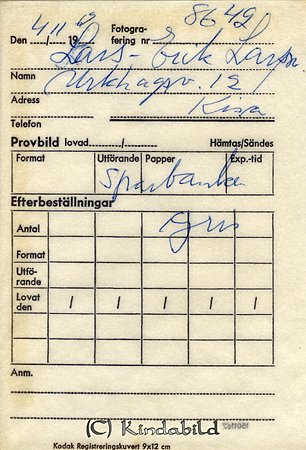 4/11 69 Fotogra- 8649
Den ..../.... 19 fering nr
Lars-Erik Larsson
Namn
12
Adress Kisa
Telefon
Provbild lovad......../........ Hämtas/Sändes
Format Utförande Papper Exp.-tid
Sparbanken
Efterbeställningar
Gris
Antal
Format
Utfö-
rande
Lovat
den / / / / /
Anm.
(C) Kindabild
Kodak Registreringskuvert 9x12 cm